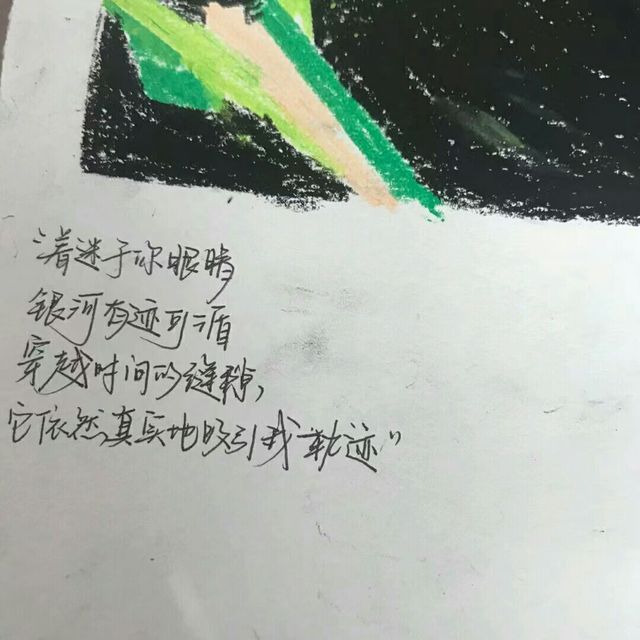 “着迷于你眼睛
银河有迹可循
穿越时间的缝隙,
它依然真实地吸引我轨迹”